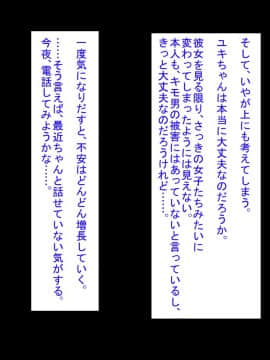 そして、いやが上にも考えてしまう。
ユキちゃんは本当に大丈夫なのだろうか。
彼女を見る限り、さっきの女子たちみたいに
変わってしまったようには見えない。
本人も、キモ男の被害にはあっていないと言っているし、
きっと大丈夫なのだろうけれど……。
一度気になりだすと、不安はどんどん増長していく。
……そう言えば、最近ちゃんと話せていない気がする。
今夜、電話してみようかな……。